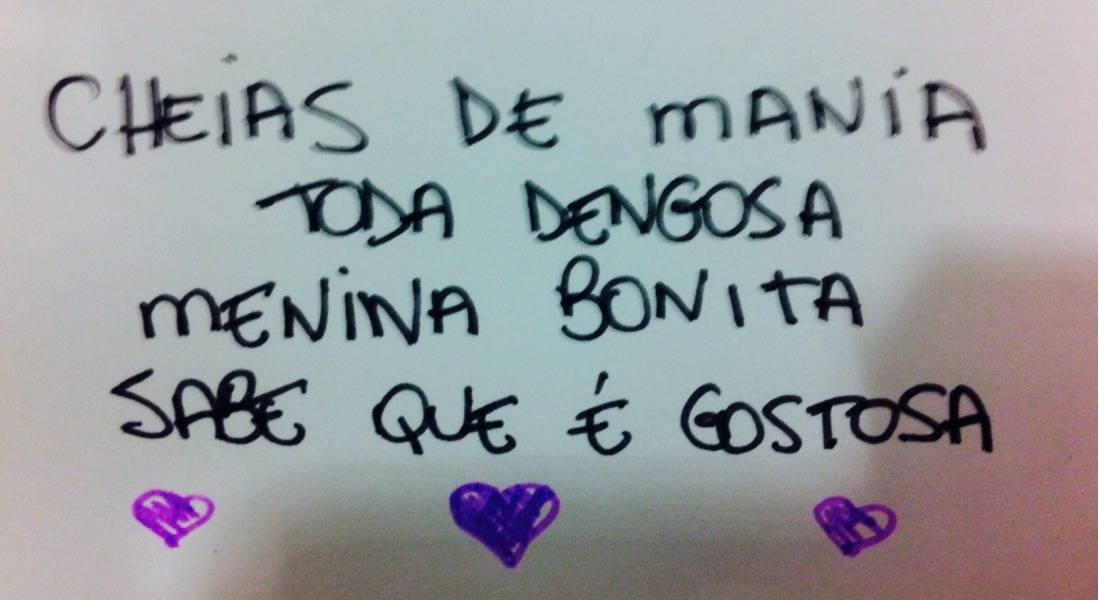 CHEIAS DE MANIA
TODA DENGOSA
MENINA BONITA
SABE QUE É GOSTOSA